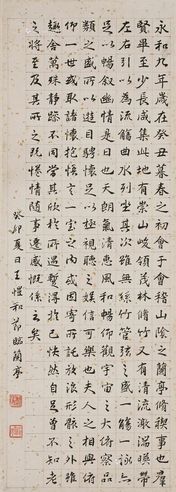 永和九年歲在癸丑暮春之初會于會稽山陰之蘭亭脩稧事也群
賢畢至少長咸集此地有崇山峻領茂林脩竹又有清流激湍暎帶
左右引以為流觴曲水列坐其次雖無絲竹管弦之盛一觴一詠亦
足以暢敘幽情是日也天朗氣清惠風和暢仰觀宇宙之大俯察品
類之盛所以遊目騁懷足以極視聽之娛信可樂也夫人之相與俯
仰一世或取諸懷抱悟言一室之內或因寄所託放浪形骸之外雖
趣舍萬殊靜躁不同當其欣於所遇暫得於己怏然自足曾不知老
之將至及其所之既惓情隨事遷感慨係之矣
癸卯夏日王愷和節臨蘭亭